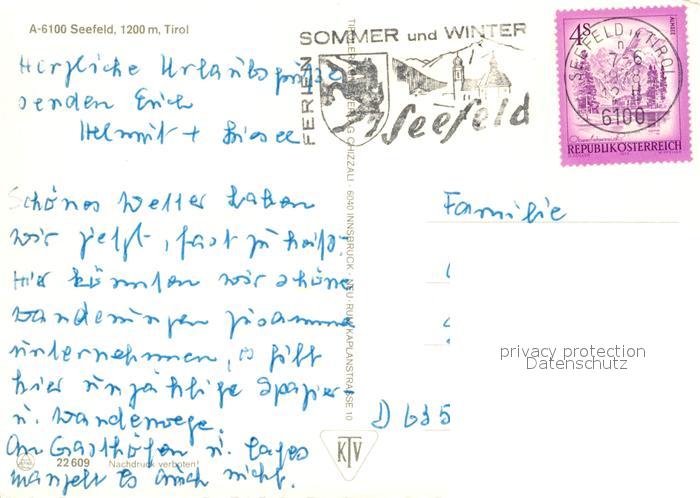 A-6100 Seefeld, 1200 m, Tirol
Herzliche Urlaubsgrüße
senden Euch
Helmut +
Schönes Wetter haben
wir jetzt, fast zu heiß.
Hier könnten wir schöne
Wanderungen zusammen
unternehmen, es gibt
hier unzählige Spazier-
u. Wanderwege.
An Gasthöfen u. Cafes
mangelt es auch nicht.
22 609 Nachdruck verboten!
CHIZZALI · 6040 INNSBRUCK · NEU-RUM KAPLANSTRASSE 10
KTV
FERIEN
SOMMER und WINTER
Seefeld
4 S
ALMSEE
REPUBLIK ÖSTERREICH
SEEFELD TIROL
6100
Familie
D 635
privacy protection
Datenschutz